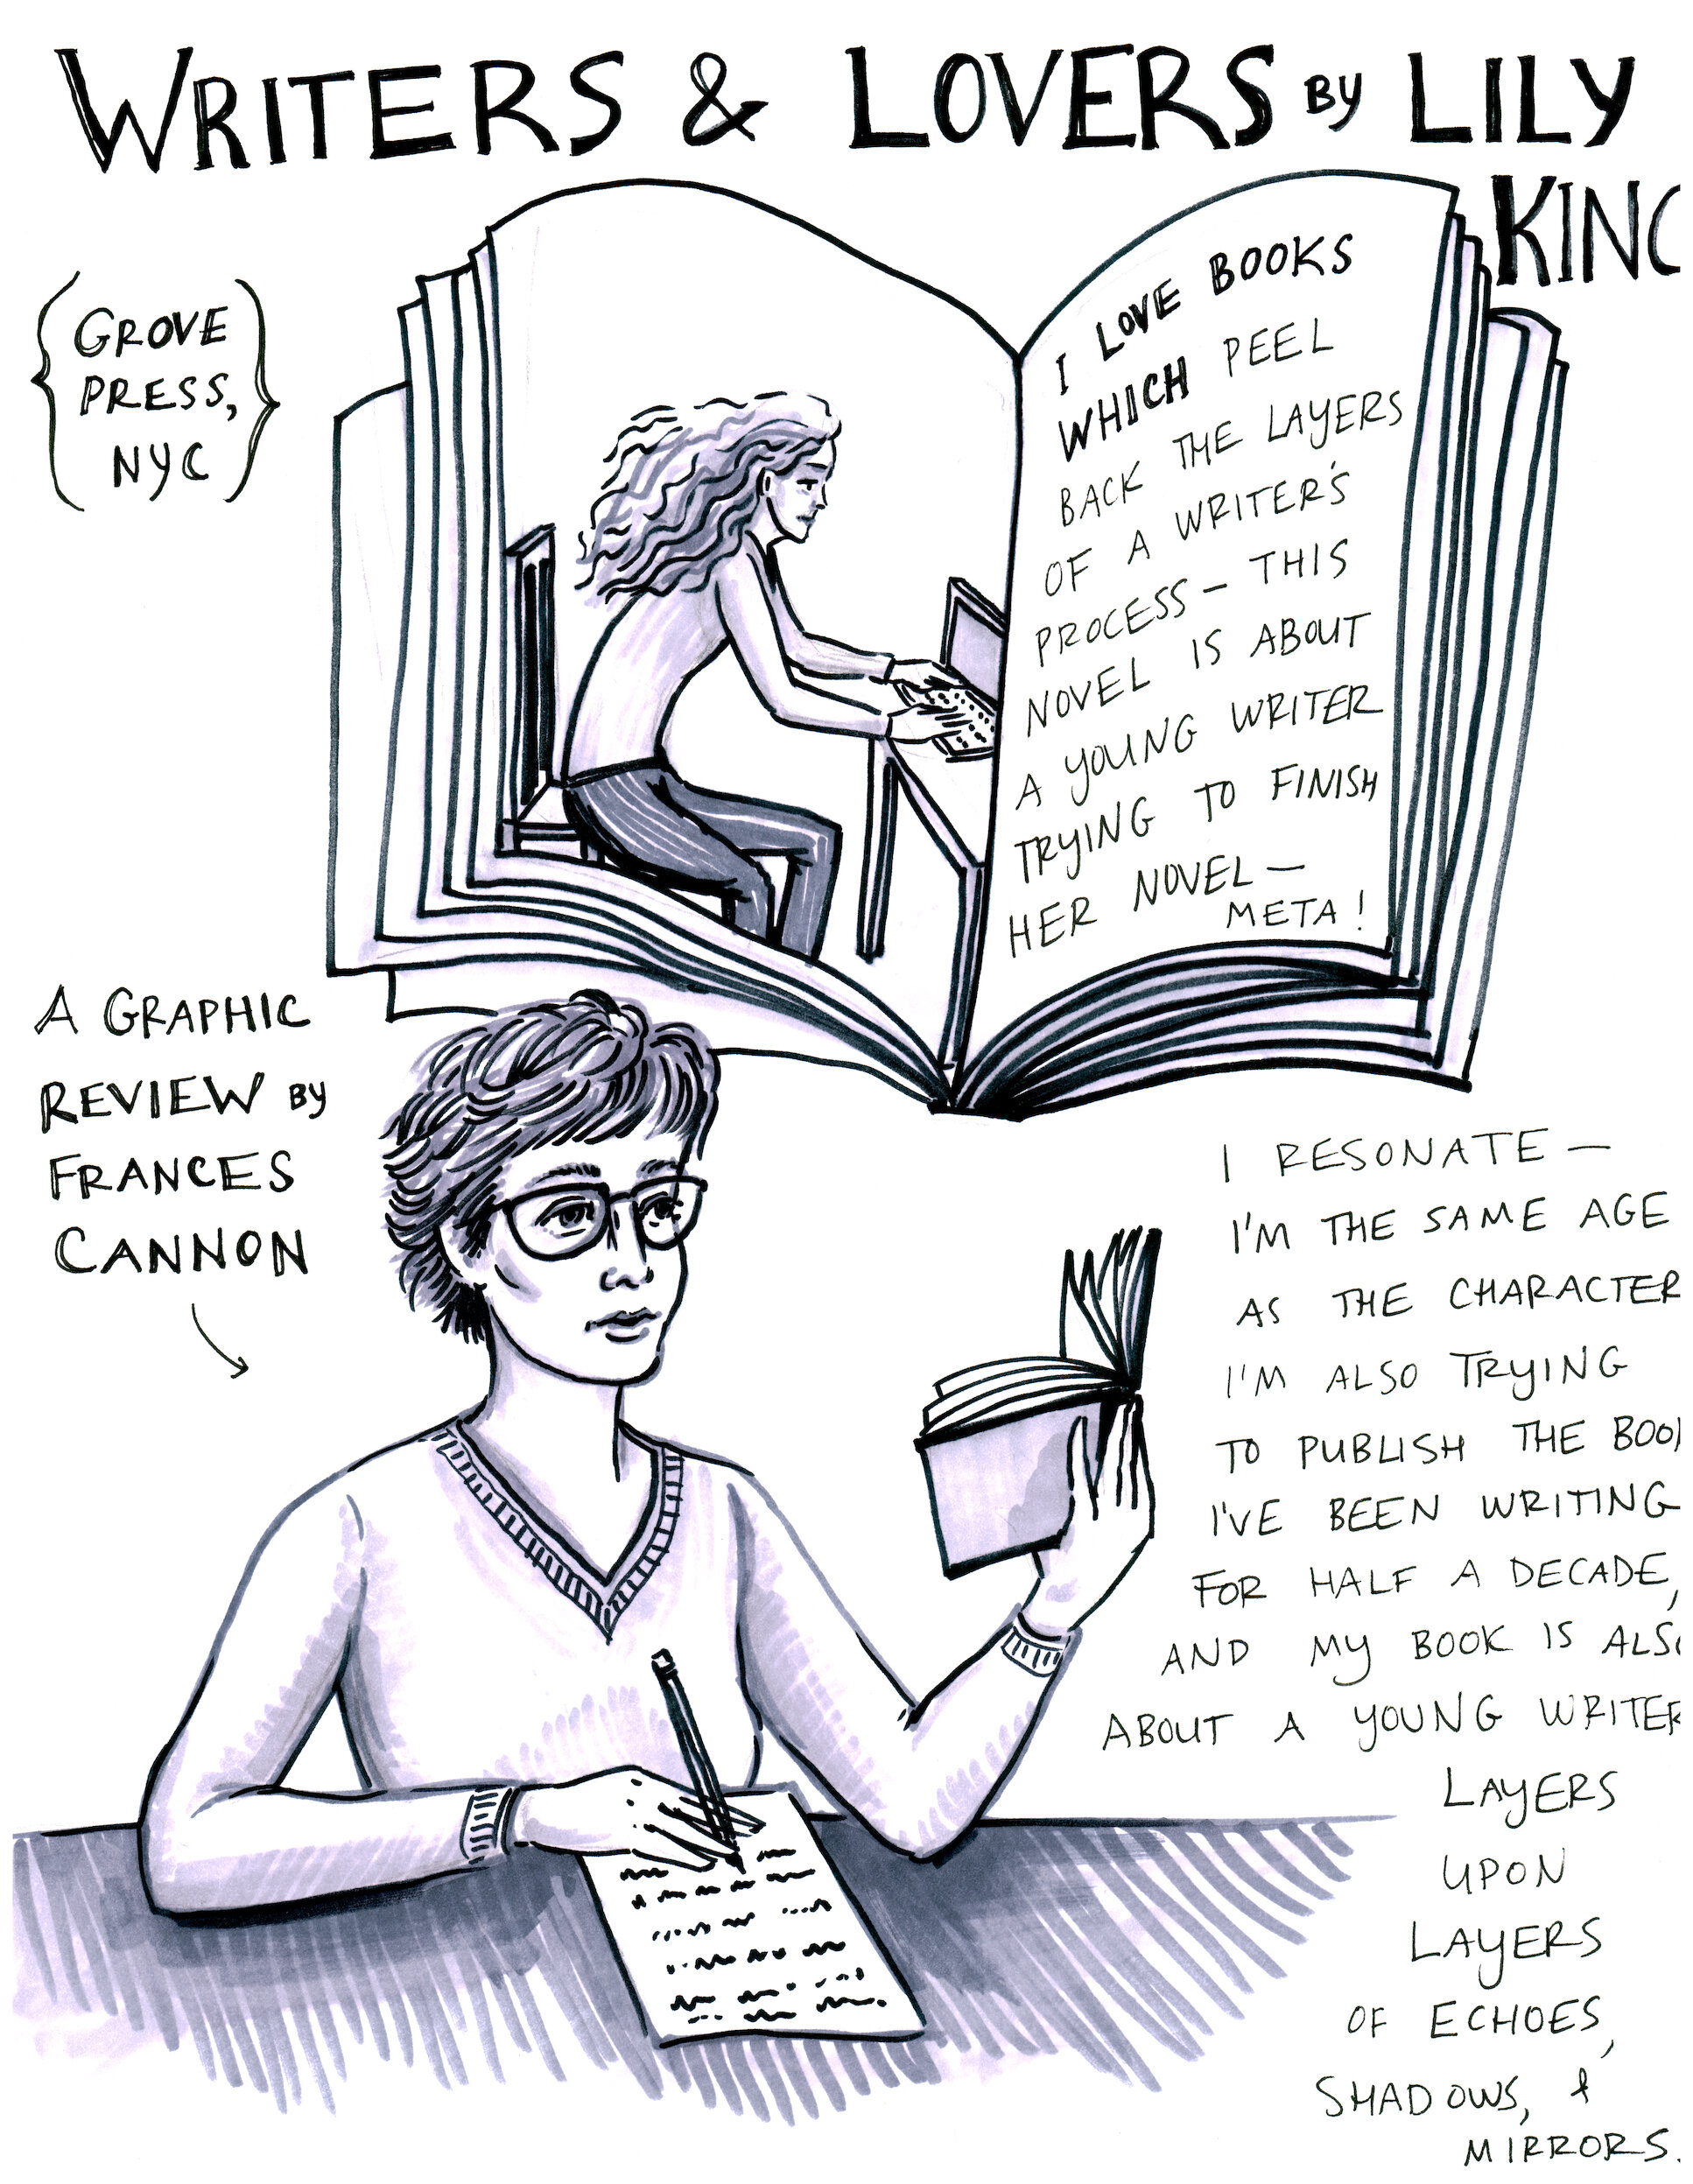 WRITERS & LOVERS BY LILY
KING
{GROVE
PRESS,
NYC}
I LOVE BOOKS
WHICH PEEL
BACK THE LAYERS
OF A WRITER'S
PROCESS — THIS
NOVEL IS ABOUT
A YOUNG WRITER
TRYING TO FINISH
HER NOVEL —
META!
A GRAPHIC
REVIEW BY
FRANCES
CANNON
I RESONATE —
I'M THE SAME AGE
AS THE CHARACTER
I'M ALSO TRYING
TO PUBLISH THE BOOK
I'VE BEEN WRITING
FOR HALF A DECADE,
AND MY BOOK IS ALSO
ABOUT A YOUNG WRITER
LAYERS
UPON
LAYERS
OF ECHOES,
SHADOWS, &
MIRRORS.